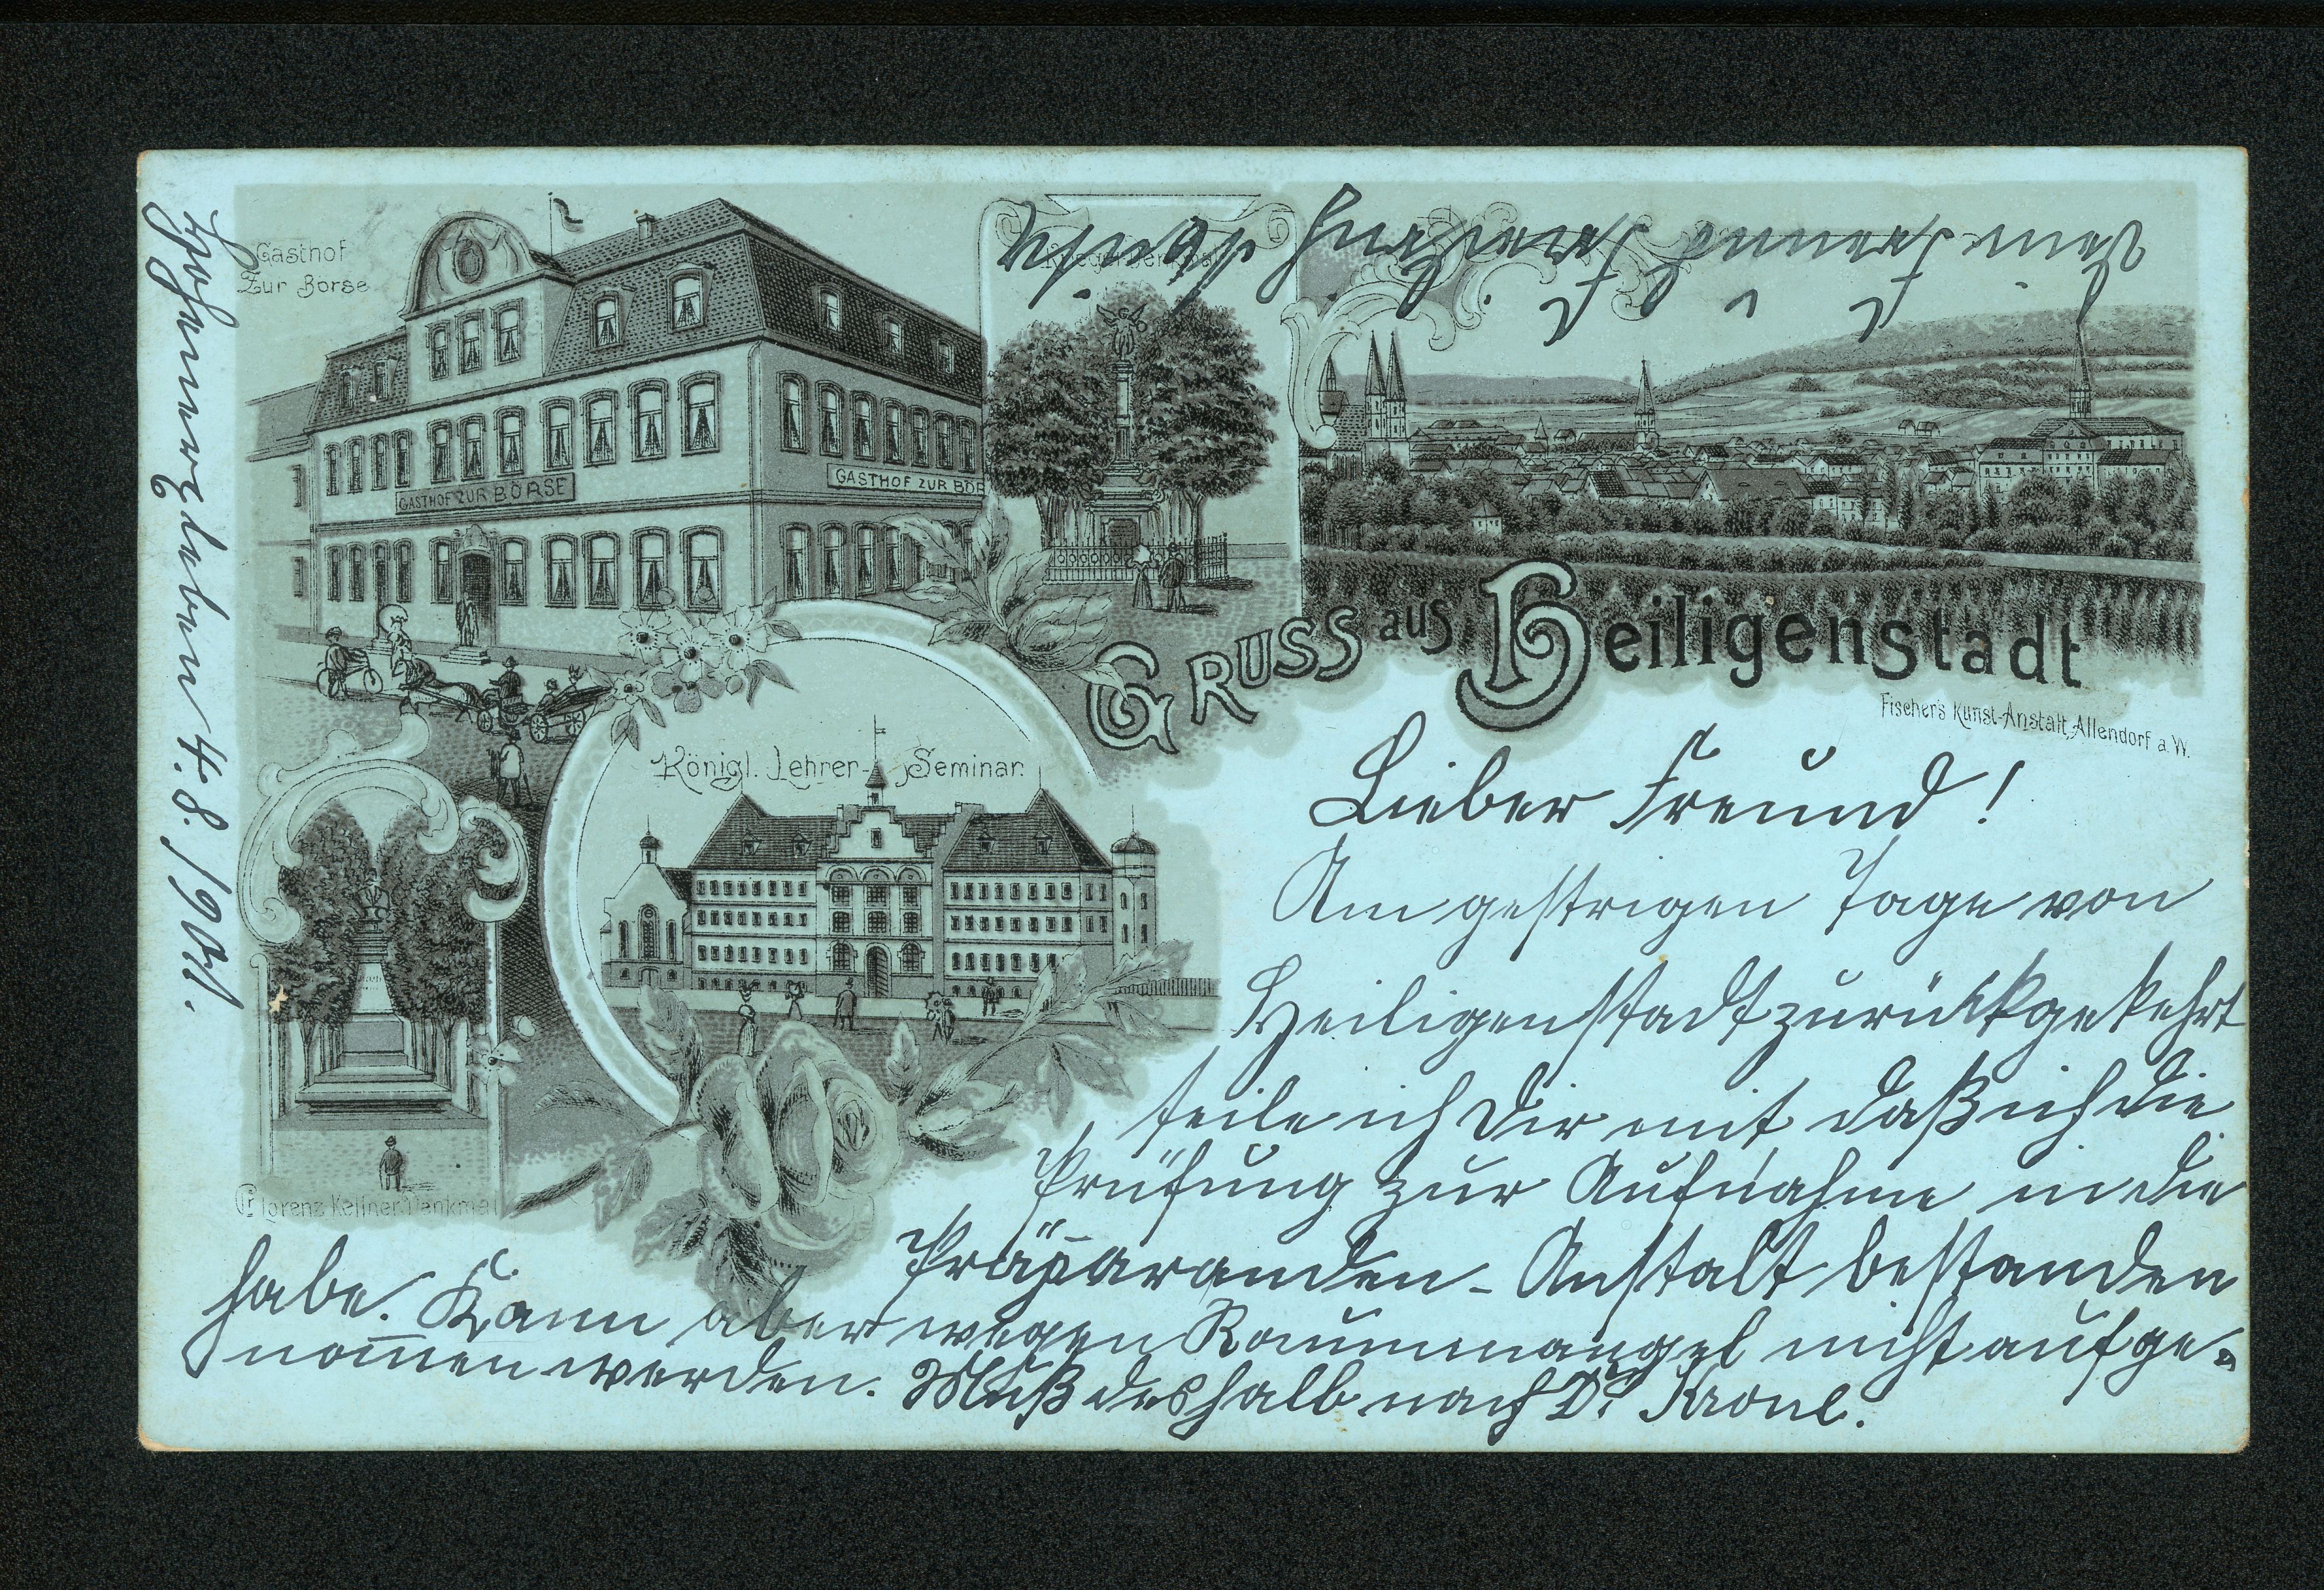 Gasthof
Zur Börse
GASTHOF ZUR BÖRSE
GASTHOF ZUR BÖR
Dein Freund
GRUSS aus Heiligenstadt
Fischer's Kunst-Anstalt, Allendorf a. W.
Königl. Lehrer-Seminar.
Lorenz Kellner Denkmal
4. 8. 1901.
Lieber Freund!
Am gestrigen Tage von
Heiligenstadt zurückgekehrt
teile ich Dir mit daß ich die
Prüfung zur Aufnahme in die
Präparanden-Anstalt bestanden
habe. Kann aber wegen Raummangel nicht aufge-
nom̅en werden. Muß deshalb nach